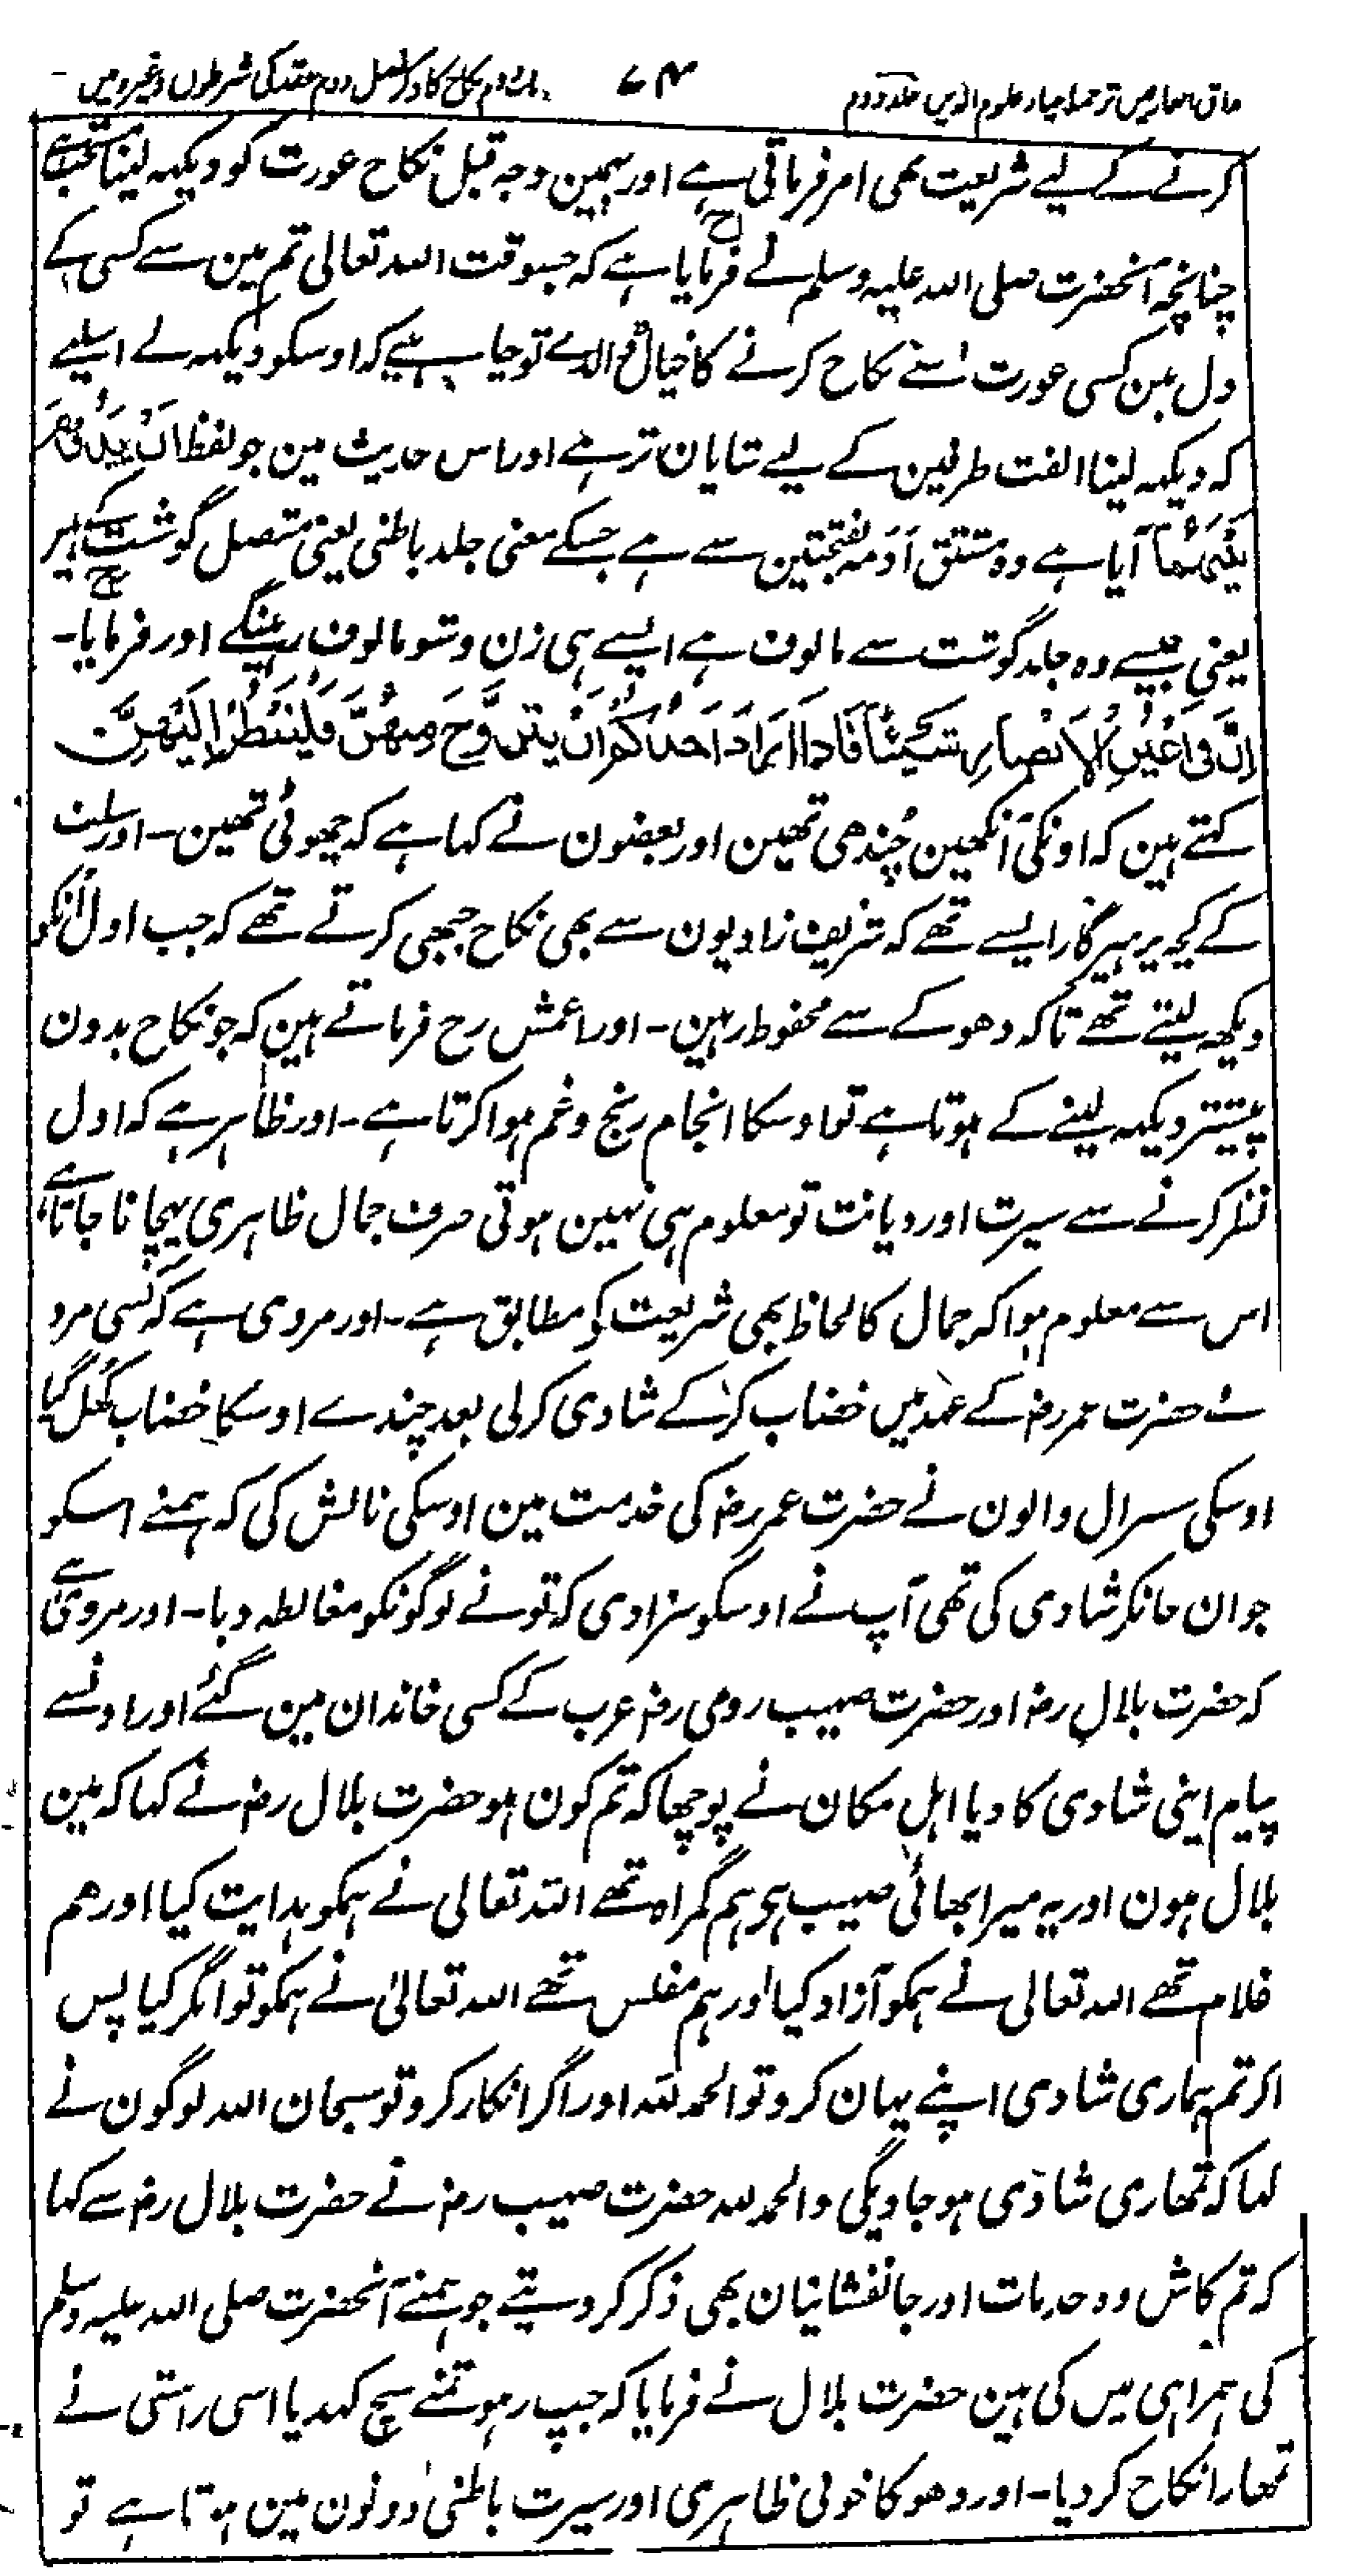 مذاق العارفین ترجمہ احیاء علوم الدین جلد دوم ۷۴ باب دوم نکاح کا ذکر فصل دوم عقد کی شرطوں وغیرہ میں
کرنے کے لیے شریعت بھی امر فرماتی ہے اور ہمین وجہ قبل نکاح عورت کو دیکہہ لینا مستحب ہے
چنانچہ آنحضرت صلی اللہ علیہ وسلم نے فرمایا ہے کہ جسوقت اللہ تعالی تم مین سے کسی کے
دل مین کسی عورت سے نکاح کرنے کا خیال ڈالدے تو چاہیے کہ اوسکو دیکہہ لے اسلیے
کہ دیکہہ لینا الفت طرفین کے لیے شایان تر ہے اور اس حدیث مین جو لفظ اَنْ یُؤْدَمَ
بَیْنَہُمَا آیا ہے وہ مشتق اَدَمَہ بفتحتین سے ہے جسکے معنی جلد باطنی یعنی متصل گوشت کے ہیں
یعنی جیسے وہ جلد گوشت سے مالوف ہے ایسے ہی زن و شو مالوف رہینگے اور فرمایا۔
اِنَّ فِی اَعْیُنِ الْاَنْصَارِ شَیْئًا فَاِذَا اَرَادَ اَحَدُکُمْ اَنْ یَتَزَوَّجَ مِنْھُنَّ فَلْیَنْظُرْ اِلَیْھِنَّ
کہتے ہین کہ اونکی آنکہین چُندھی تھین اور بعضون نے کہا ہے کہ چھوٹی تھین۔ اور سلف
کے کچہ پرہیزگار ایسے تھے کہ شریف زادیون سے بھی نکاح جبھی کرتے تھے کہ جب اول اُنکو
دیکھہ لیتے تھے تاکہ دھوکے سے محفوظ رہین۔ اور اعمش رح فرماتے ہین کہ جو نکاح بدون
پیشتر دیکہہ لینے کے ہوتا ہے تو اوسکا انجام رنج و غم ہوا کرتا ہے۔ اور ظاہر ہے کہ اول
نظر کرنے سے سیرت اور دیانت تو معلوم ہی نہین ہوتی صرف جمال ظاہری پہچانا جاتا ہے
اس سے معلوم ہوا کہ جمال کا لحاظ بھی شریعت کو مطابق ہے۔ اور مروی ہے کہ کسی مرد
نے حضرت عمر رضہ کے عہد میں خضاب کرکے شادی کرلی بعد چندے اوسکا خضاب کُھل گیا
اوسکی سسرال والون نے حضرت عمر رضہ کی خدمت مین اوسکی نالش کی کہ ہمنے اسکو
جوان جانکر شادی کی تھی آپ نے اوسکو سزا دی کہ تو نے لوگونکو مغالطہ دیا۔ اور مروی ہے
کہ حضرت بلال رضہ اور حضرت صہیب رومی رضہ عرب کے کسی خاندان مین گئے اور اونسے
پیام اپنی شادی کا دیا اہل مکان نے پوچھا کہ تم کون ہو حضرت بلال رضہ نے کہا کہ مین
بلال ہون اور یہ میرا بھائی صہیب ہو ہم گمراہ تھے اللہ تعالی نے ہمکو ہدایت کیا اور ہم
غلام تھے اللہ تعالی نے ہمکو آزاد کیا اور ہم مفلس تھے اللہ تعالیٰ نے ہمکو توانگر کیا پس
اگر تم ہماری شادی اپنے یہان کرو تو الحمد للہ اور اگر انکار کرو تو سبحان اللہ لوگون نے
کہا کہ تمھاری شادی ہوجاویگی والحمد للہ حضرت صہیب رضہ نے حضرت بلال رضہ سے کہا
کہ تم کاش وہ خدمات اور جانفشانیان بھی ذکر کردیتے جو ہمنے آنحضرت صلی اللہ علیہ وسلم
کی ہمراہی میں کی ہین حضرت بلال نے فرمایا کہ چپ رہو تمنے سچ کہدیا اسی راستی نے
تمھارا نکاح کردیا۔ اور دھوکا خوبی ظاہری اور سیرت باطنی دونون مین ہوتا ہے تو